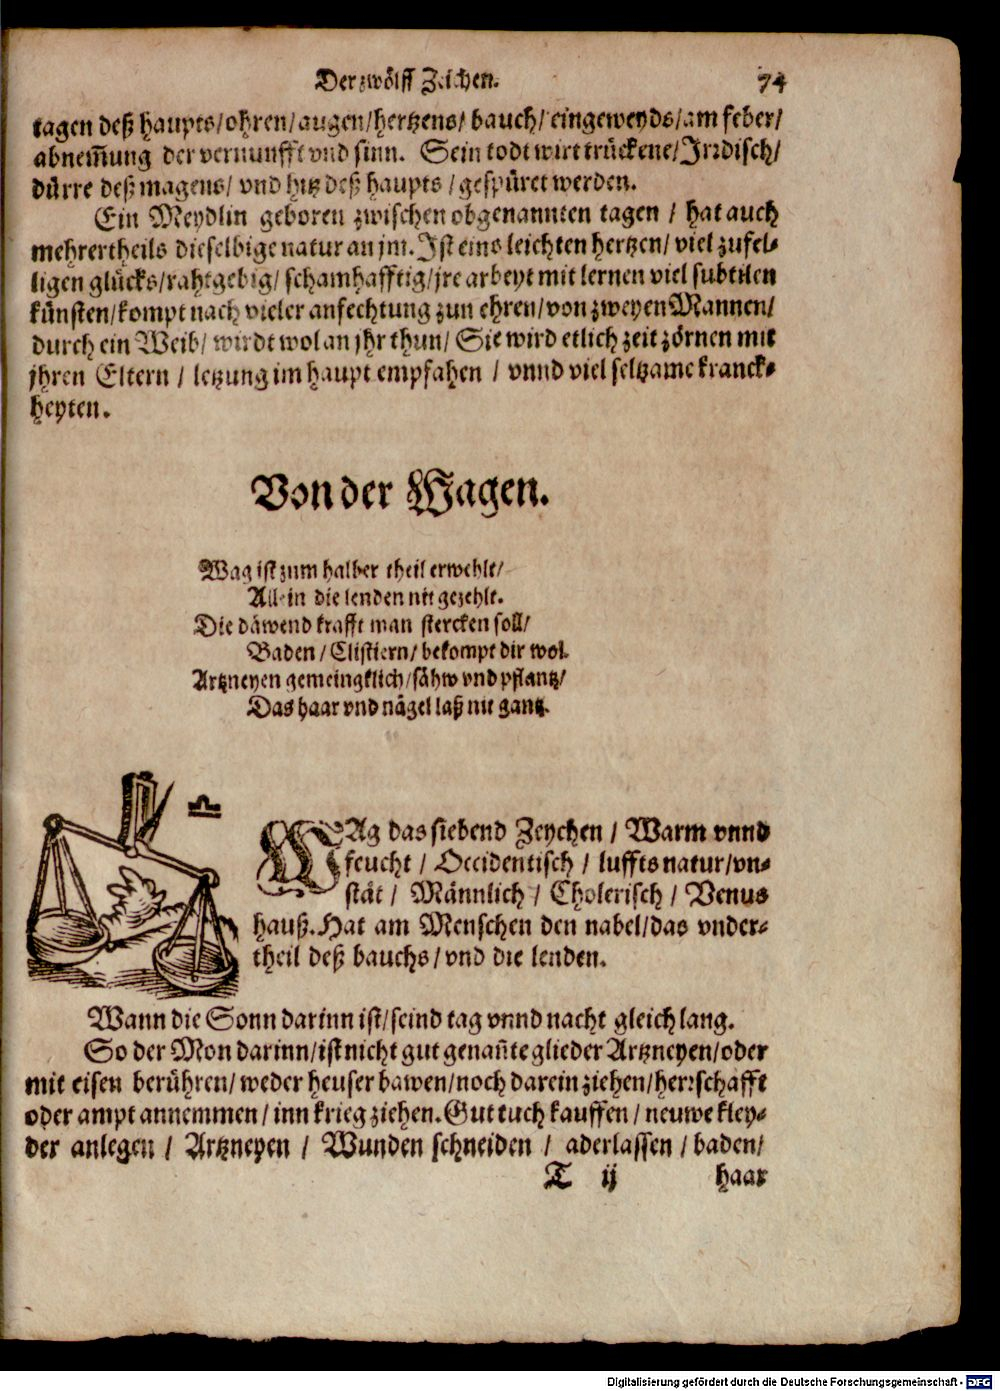 Der zwölff Zeichen. 74
tagen deß haupts/ohren/augen/hertzens/bauch/eingeweyds/am feber/
abnem̃ung der vernunfft vnd sinn. Sein todt wirt trückene/Irrdisch/
dürre deß magens/ vnd hitz deß haupts /gespüret werden.
Ein Meydlin geboren zwischen obgenannten tagen / hat auch
mehrertheils dieselbige natur an jm. Ist eins leichten hertzen/ viel zufel-
ligen glücks/rahtgebig/schamhafftig/jre arbeyt mit lernen viel subtilen
künsten/kompt nach vieler anfechtung zun ehren/von zweyen Mannen/
durch ein Weib/ wirdt wol an jhr thun/ Sie wird etlich zeit zörnen mit
jhren Eltern / letzung im haupt empfahen / vnnd viel seltzame kranck-
heyten.
Von der Wagen.
Wag ist zum halber theil erwehlt/
Allein die lenden nit gezehlt.
Die däwend krafft man stercken soll/
Baden/Clistiern/bekompt dir wol.
Artzneyen gemeingklich/sähw vnd pflantz/
Das haar vnd nägel laß nit gantz.
♎
WAg das siebend Zeychen / Warm vnnd
feucht / Occidentisch / luffts natur/vn-
stät / Männlich / Cholerisch / Venus
hauß. Hat am Menschen den nabel/das vnder-
theil deß bauchs/vnd die lenden.
Wann die Sonn darinn ist/seind tag vnnd nacht gleich lang.
So der Mon darinn/ist nicht gut genañte glieder Artzneyen/oder
mit eisen berühren/weder heuser bawen/noch darein ziehen/herrschafft
oder ampt annemmen/inn krieg ziehen. Gut tuch kauffen/neuwe kley-
der anlegen / Artzneyen / Wunden schneiden / aderlassen / baden/
T ij haar
Digitalisierung gefördert durch die Deutsche Forschungsgemeinschaft - DFG